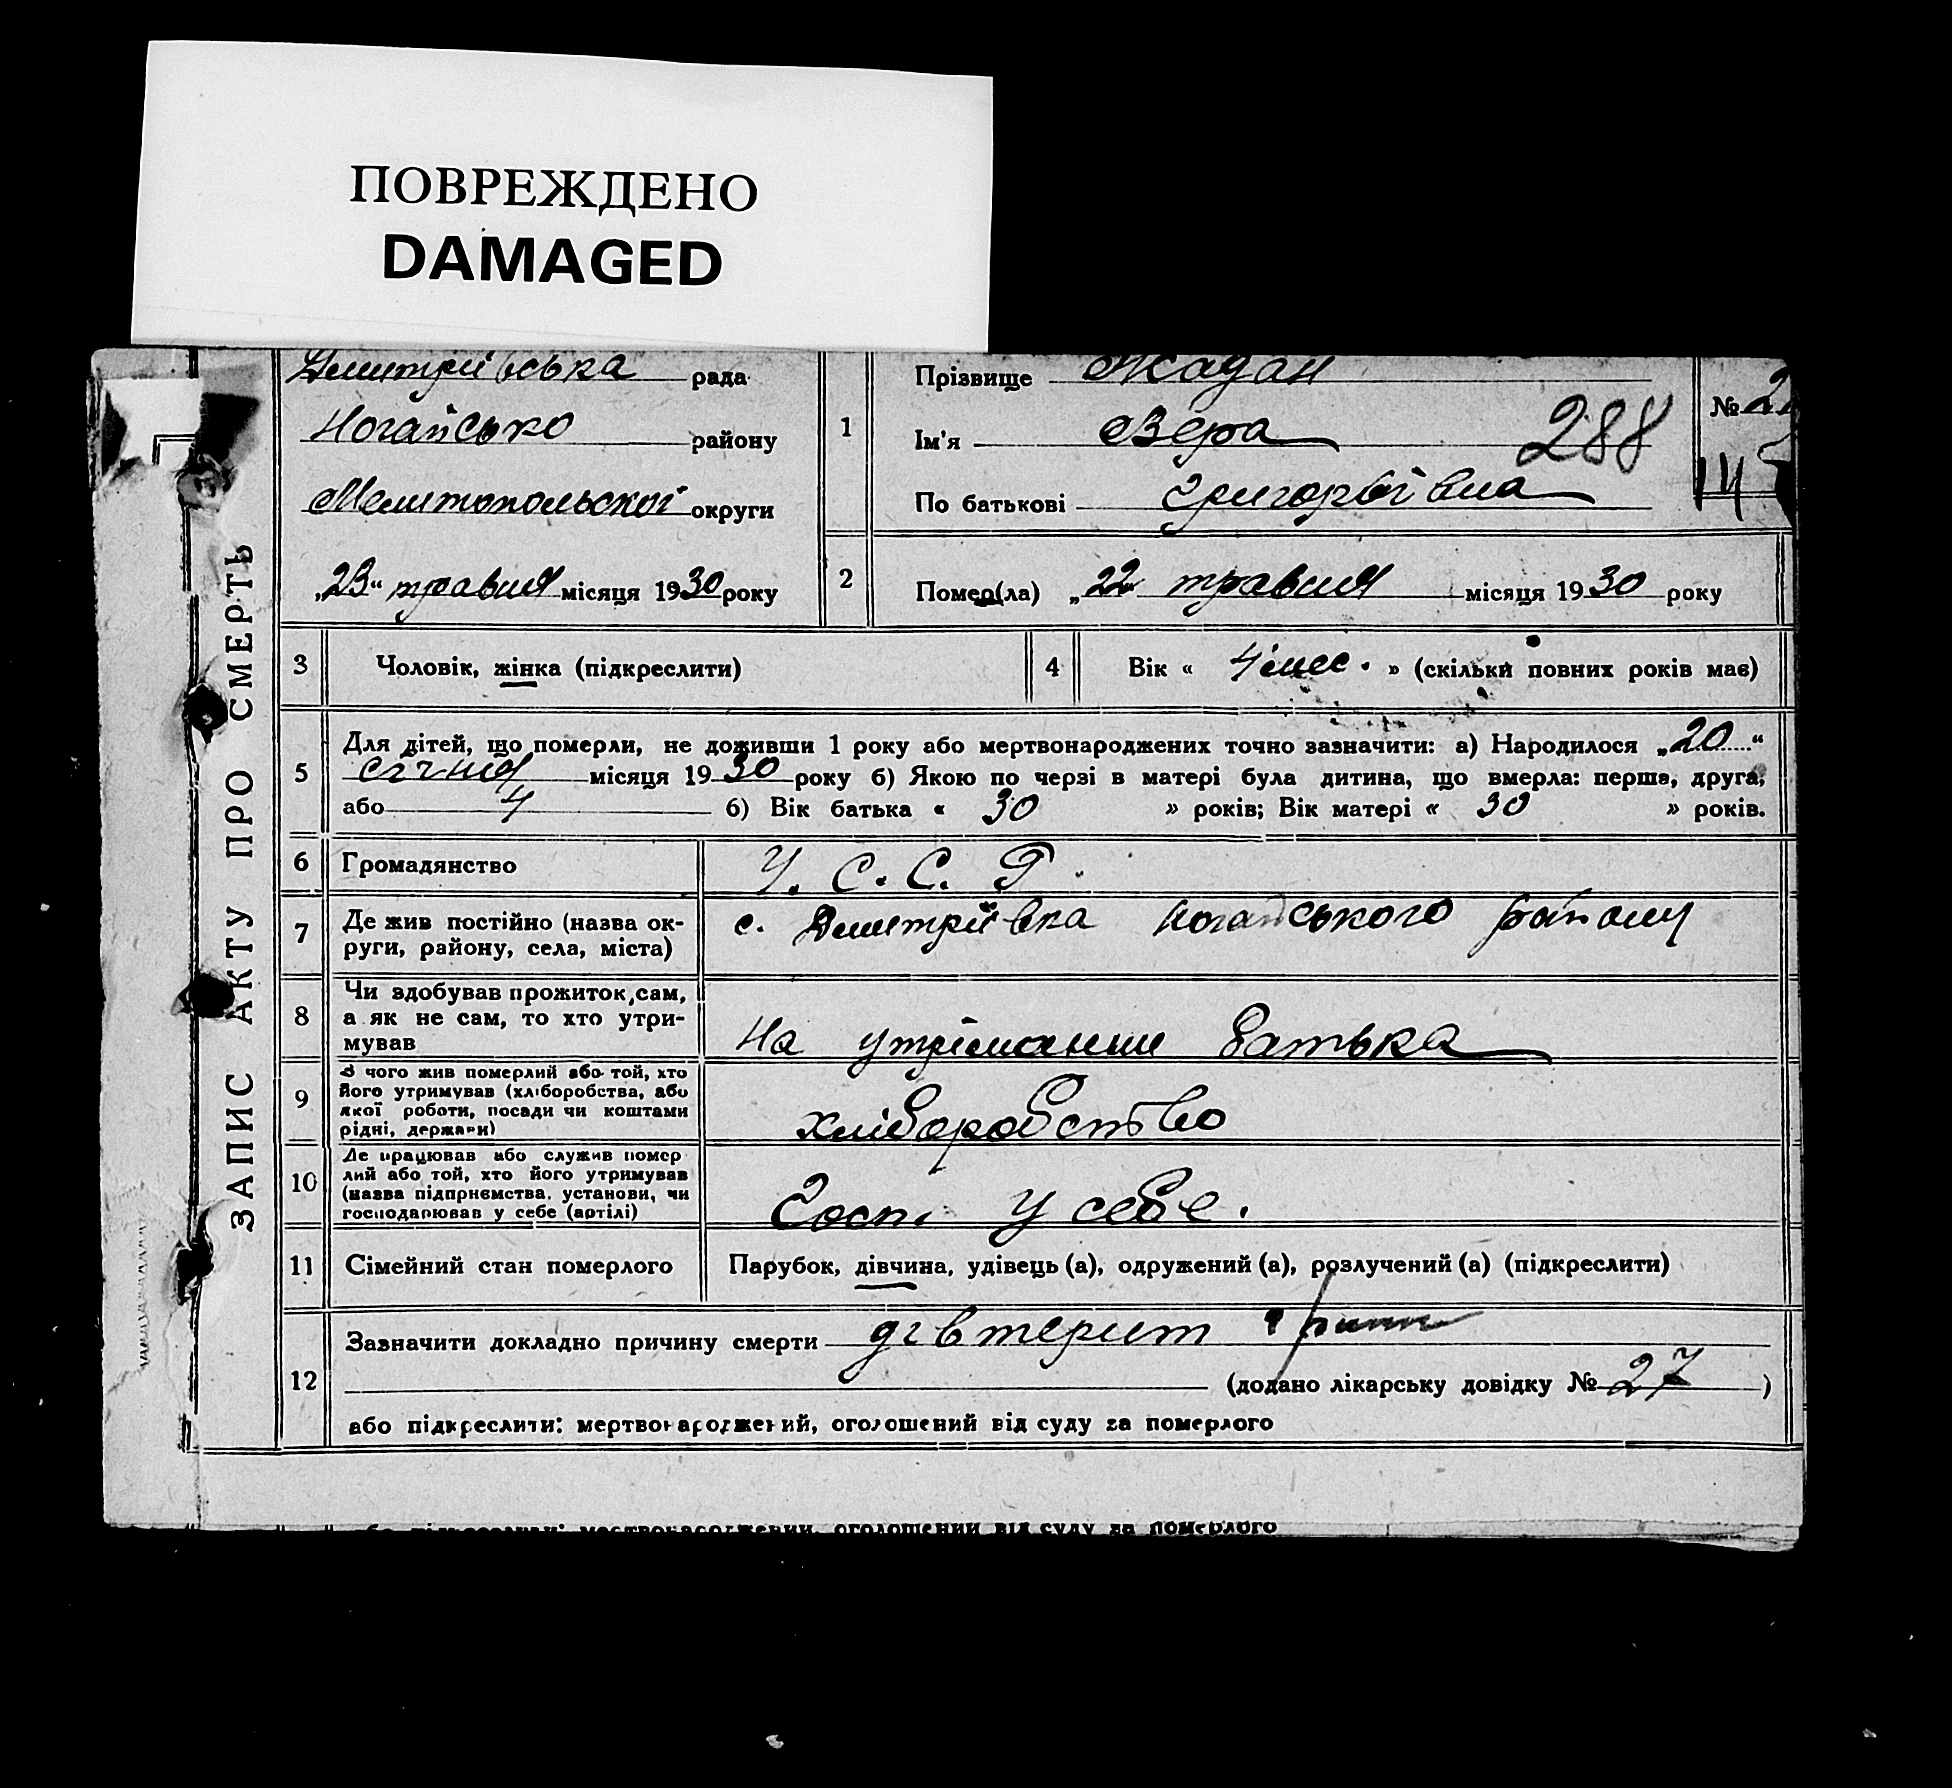 ПОВРЕЖДЕНО
DAMAGED
ЗАПИС АКТУ ПРО СМЕРТЬ
Дмитріївська рада
Ногайсько району
Мелитопольскої округи
„23“ травня місяця 1930 року
1
Прізвище Жадан
Ім'я Вера
288
По батькові Григорьївна
№ 2
14
2
Помер(ла) „22“ травня місяця 1930 року
3 Чоловік, жінка (підкреслити)
4 Вік « 4 мес. » (скільки повних років має)
5 Для дітей, що померли, не доживши 1 року або мертвонароджених точно зазначити: а) Народилося „20“
січня місяця 1930 року б) Якою по черзі в матері була дитина, що вмерла: перша, друга,
або 4 б) Вік батька « 30 » років; Вік матері « 30 » років.
6 Громадянство У. С. С. Р.
7 Де жив постійно (назва ок-
руги, району, села, міста)
с. Дмитріївка Ногайського району
8 Чи здобував прожиток, сам,
а як не сам, то хто утри-
мував
На утріманни батька
9 З чого жив померлий або той, хто
його утримував (хліборобства, або
якої роботи, посади чи коштами
рідні, держави)
хліборобство
10 Де працював або служив помер
лий або той, хто його утримував
(назва підприємства, установи, чи
господарював у себе (артілі)
Госп. у себе.
11 Сімейний стан померлого
Парубок, дівчина, удівець (а), одружений (а), розлучений (а) (підкреслити)
12 Зазначити докладно причину смерти дівтерит
(додано лікарську довідку № 27)
або підкреслити: мертвонароджений, оголошений від суду за померлого
або підкреслити: мертвонароджений, оголошений від суду за померлого